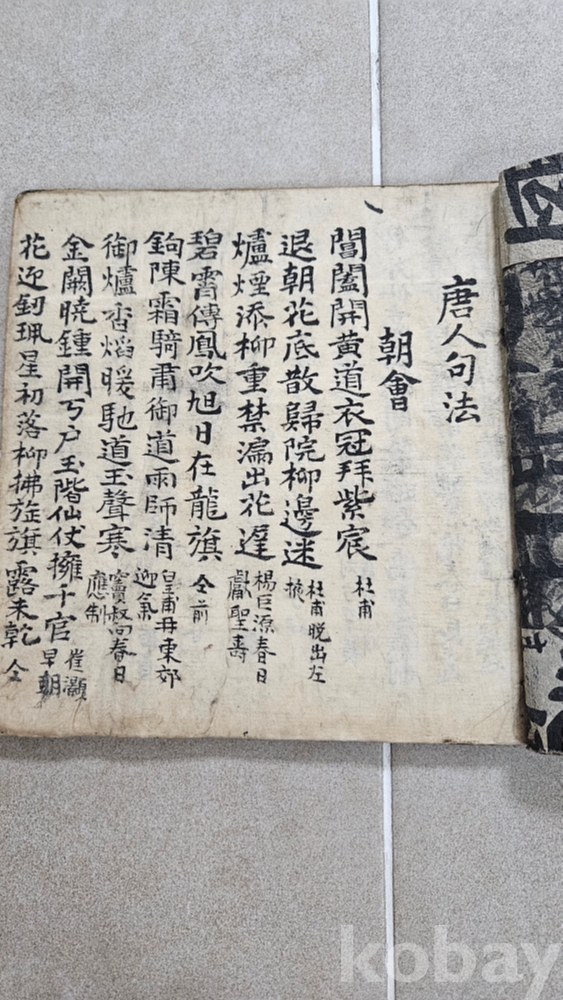 唐人句法
朝會
閶闔開黃道衣冠拜紫宸 杜甫
退朝花底散歸院柳邊迷 杜甫晚出左掖
爐煙添柳重禁漏出花遲 楊巨源春日獻聖壽
碧霄傳鳳吹旭日在龍旗 仝前
鉤陳霜騎肅御道雨師清 皇甫冉東郊迎氣
御爐香焰暖馳道玉聲寒 竇叔向春日應制
金闕曉鍾開万户玉階仙仗擁千官
花迎釰珮星初落柳拂旌旗露未乾 崔灝早朝 仝
kobay